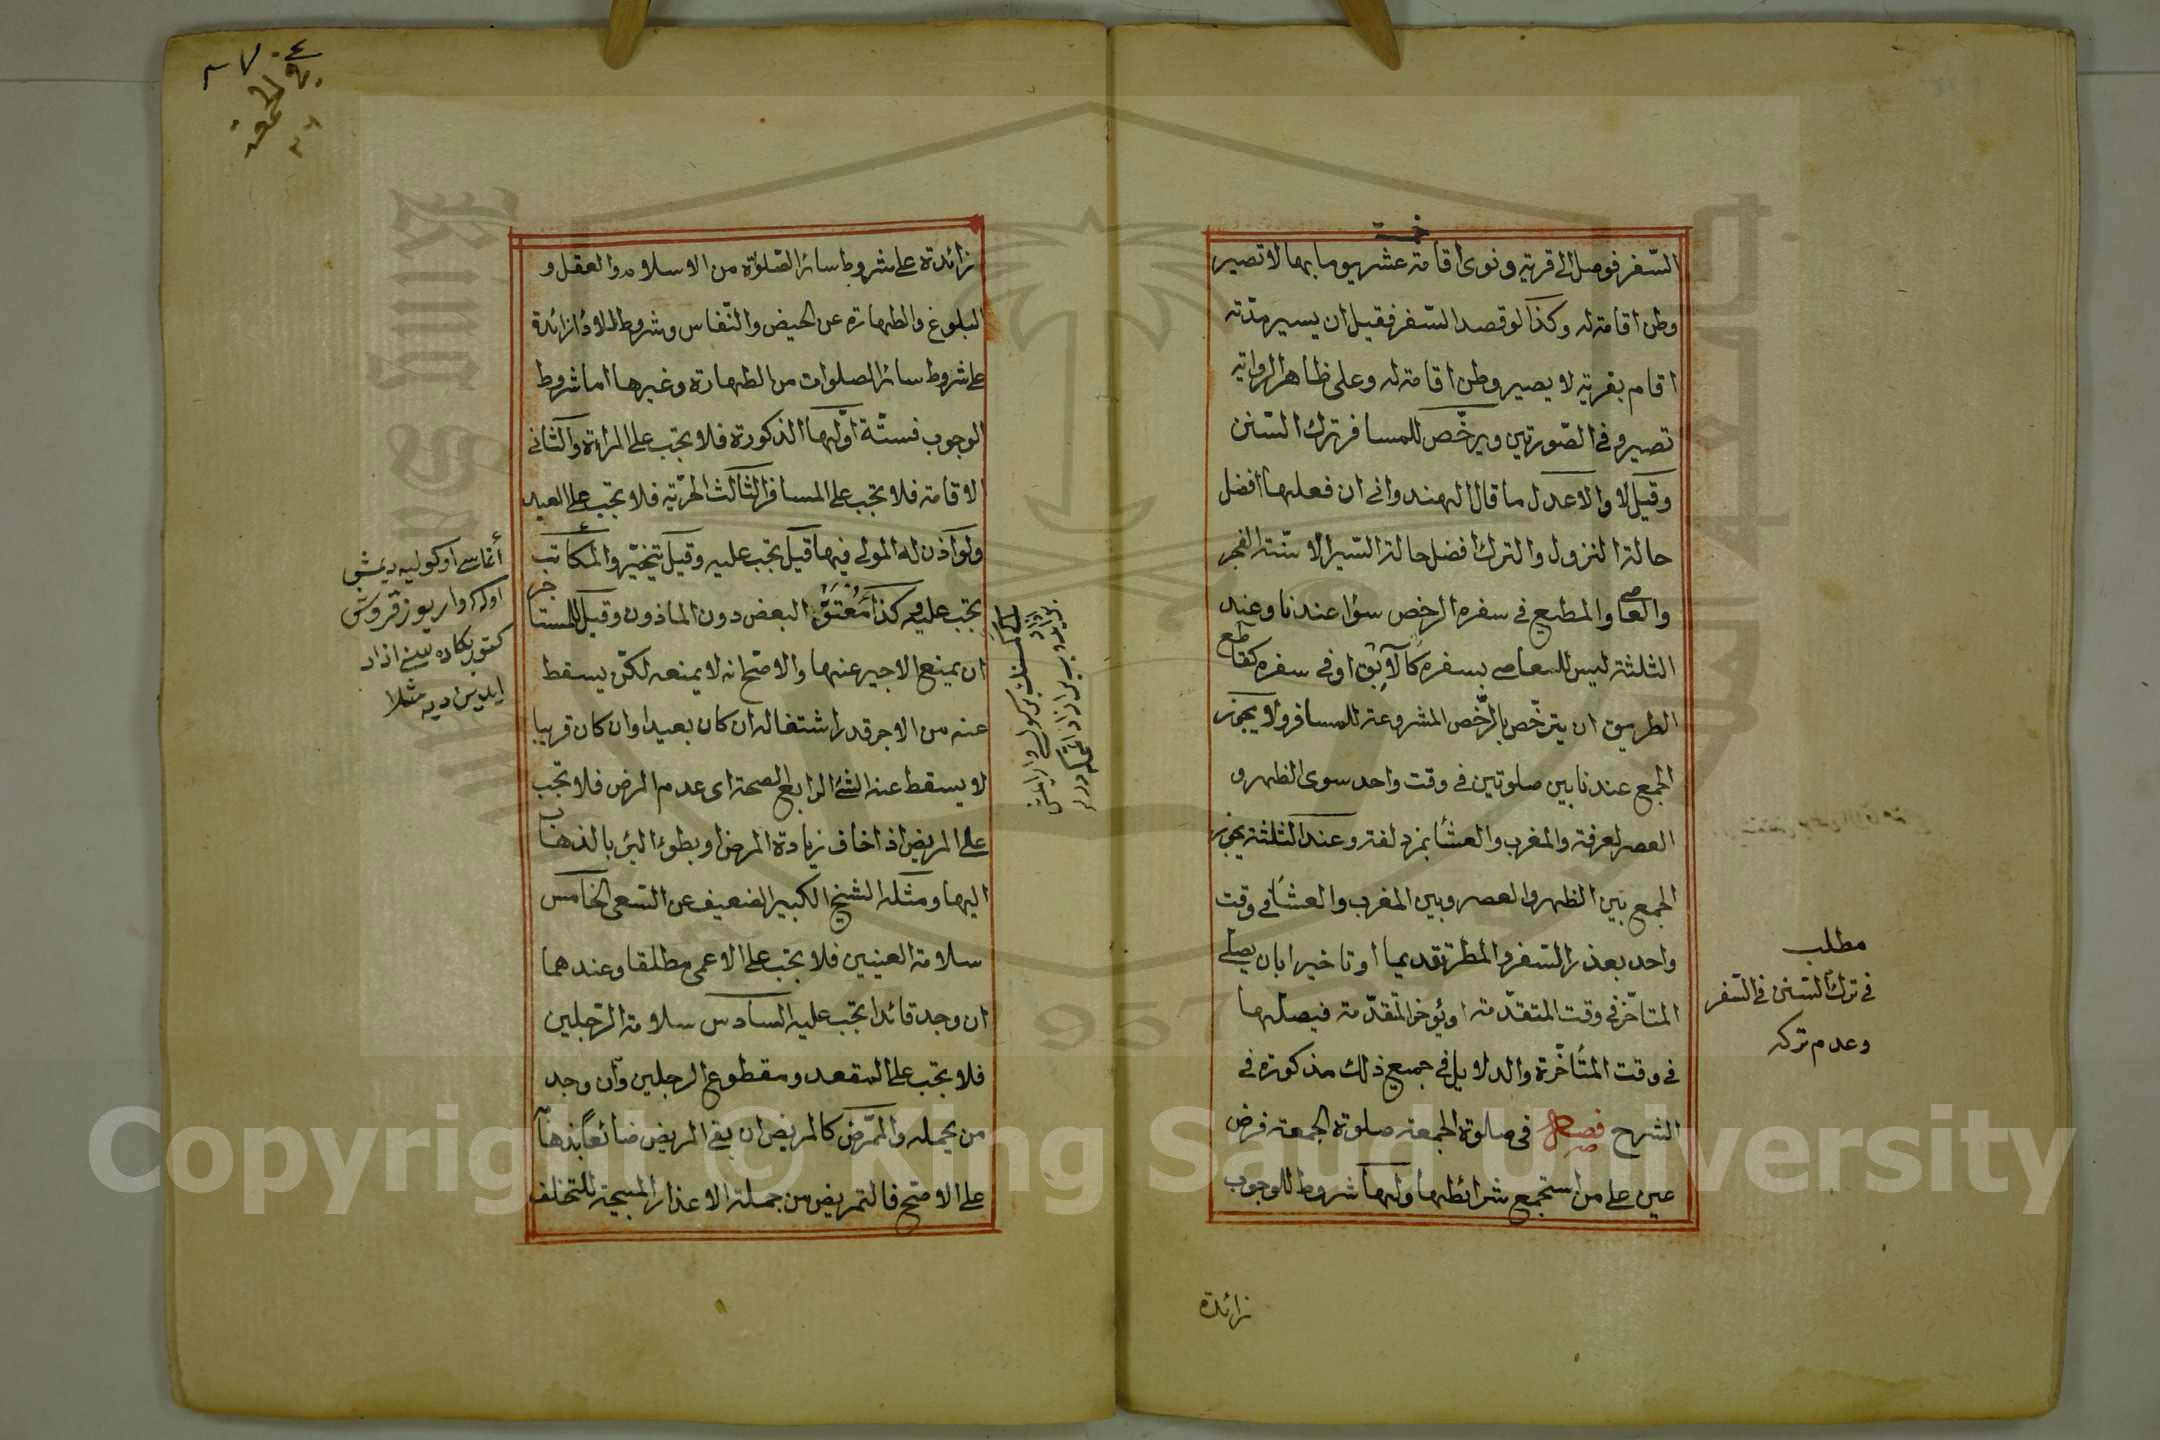 خمسة
السّفر فوصل الى قرية ونوى اقامة عشر يوما بها لا تصير
وطن اقامة له وكذا لو قصد السّفر فقبل ان يسير مدّته
اقام بقرية لا يصير وطن اقامة له وعلى ظاهر الرواية
تصير وفي الصّورتين ويرخّص للمسافر ترك السّنن
وقيل لا والاعدل ما قال الهندوانى ان فعلها افضل
حالة النزول والترك افضل حالة السّير الا سنّة الفجر
والعاصى والمطيع في سفره الرخص سواء عندنا وعند
الثلثة ليس للعاصى بسفره كالآبق او فى سفره كقاطع
الطريق ان يترخّص بالرّخص المشروعة للمسافر ولا يجوز
الجمع عندنا بين صلوتين فى وقت واحد سوى الظهر و
العصر لعرفة والمغرب والعشاء بمزدلفة وعند الثلثة يجوز
الجمع بين الظهر والعصر وبين المغرب والعشاء فى وقت
واحد بعذر السّفر والمطر تقديما او تاخيرا بان يصلى
المتاخّر فى وقت المتقدّمة او يؤخر المتقدّمة فيصلها
فى وقت المتأخّرة والدلايل فى جميع ذلك مذكورة فى
الشرح فصل فى صلوة الجمعة صلوة الجمعة فرض
عين على من استجمع شرائطها ولها شروط للوجوب
زائدة
مطلب
فى ترك السّنن فى السّفر
وعدم تركه
زائدة على شروط سائر الصّلوة من الاسلام والعقل و
البلوغ والطهارة عن الحيض والنّفاس وشروط للاداء زائدة
على شروط سائر الصلوات من الطهارة وغيرها اما شروط
الوجوب فستّة اوّلها الذكورة فلا تجب على المراءة والثانى
الاقامة فلا تجب على المسافر الثالث الحرّية فلا تجب على العبد
ولو اذن له المولى فيها قيل تجب عليه وقيل يتخيّر والمكاتب
تجب عليه وكذا مُعْتَقُ البعض دون الماذون وقيل للمستاجر
ان يمنع الاجير عنها والاصّح انه لا يمنعه لكن يسقط
عنه من الاجر قدر اشتغاله ان كان بعيدا وان كان قريبا
لا يسقط عنه الشئ الرابع الصحة اى عدم المرض فلا تجب
على المريض اذا خاف زيادة المرض او بطوء البرء بالذهاب
اليها ومثله الشيخ الكبير الضعيف عن السّعى الخامس
سلامة العينين فلا تجب على الاعمى مطلقا وعندهما
ان وجد قائدا تجب عليه السادس سلامة الرّجلين
فلا تجب على المقعد ومقطوع الرجلين وان وجد
من يحمله والممّرض كالمريض ان بقى المريض ضائعًا بذهابه
على الاصّح فالتمريض من جملة الاعذار المبيحة للتخلف
Copyright © King Saud University
1957